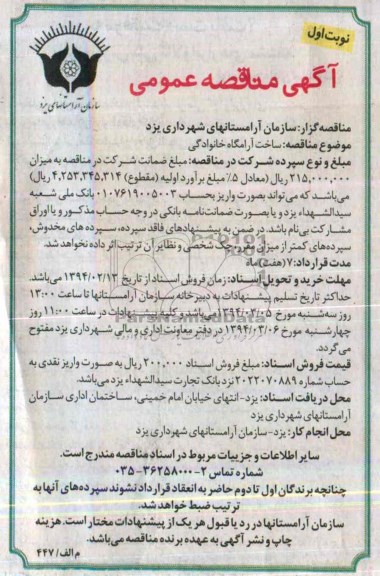 نوبت اول
سازمان آرامستانهای یزد
آگهی مناقصه عمومی
مناقصه‌گزار: سازمان آرامستانهای شهرداری یزد
موضوع مناقصه: ساخت آرامگاه خانوادگی
مبلغ و نوع سپرده شرکت در مناقصه: مبلغ ضمانت شرکت در مناقصه به میزان
۲۱۵,۰۰۰,۰۰۰ ریال (معادل ۵٪ مبلغ برآورد اولیه (مقطوع) ۴,۲۵۳,۳۴۵,۳۱۴ ریال)
می‌باشد که می‌تواند بصورت واریز بحساب ۰۱۰۷۶۱۹۰۰۵۰۰۳ بانک ملی شعبه
سیدالشهداء یزد و یا بصورت ضمانت‌نامه بانکی در وجه حساب مذکور و یا اوراق
مشارکت بی‌نام باشد. در ضمن به پیشنهادهای فاقد سپرده، سپرده های مخدوش،
سپرده‌های کمتر از میزان مقرر، چک شخصی و نظایر آن ترتیب اثر داده نخواهد شد.
مدت قرارداد: ۷ (هفت) ماه
مهلت خرید و تحویل اسناد: زمان فروش اسناد از تاریخ ۱۳۹۴/۰۲/۱۳ می‌باشد.
حداکثر تاریخ تسلیم پیشنهادات به دبیرخانه سازمان آرامستانها تا ساعت ۱۳:۰۰
روز سه‌شنبه مورخ ۱۳۹۴/۰۳/۰۵ می‌باشد و کلیه پیشنهادات در ساعت ۱۱:۰۰ روز
چهارشنبه مورخ ۱۳۹۴/۰۳/۰۶ در دفتر معاونت اداری و مالی شهرداری یزد مفتوح
می‌گردد.
قیمت فروش اسناد: مبلغ فروش اسناد ۲۰۰,۰۰۰ ریال به صورت واریز نقدی به
حساب شماره ۲۰۲۲۰۷۰۸۸۹ نزد بانک تجارت سیدالشهداء یزد می‌باشد.
محل دریافت اسناد: یزد-انتهای خیابان امام خمینی، ساختمان اداری سازمان
آرامستانهای شهرداری یزد
محل انجام کار: یزد-سازمان آرامستانهای شهرداری یزد
سایر اطلاعات و جزییات مربوط در اسناد مناقصه مندرج است.
شماره تماس ۲-۳۶۲۵۸۰۰۰-۰۳۵
چنانچه برندگان اول تا دوم حاضر به انعقاد قرارداد نشوند سپرده‌های آنها به
ترتیب ضبط خواهد شد.
سازمان آرامستانها در رد یا قبول هر یک از پیشنهادات مختار است. هزینه
چاپ و نشر آگهی به عهده برنده مناقصه می‌باشد.
م الف/ ۴۴۷